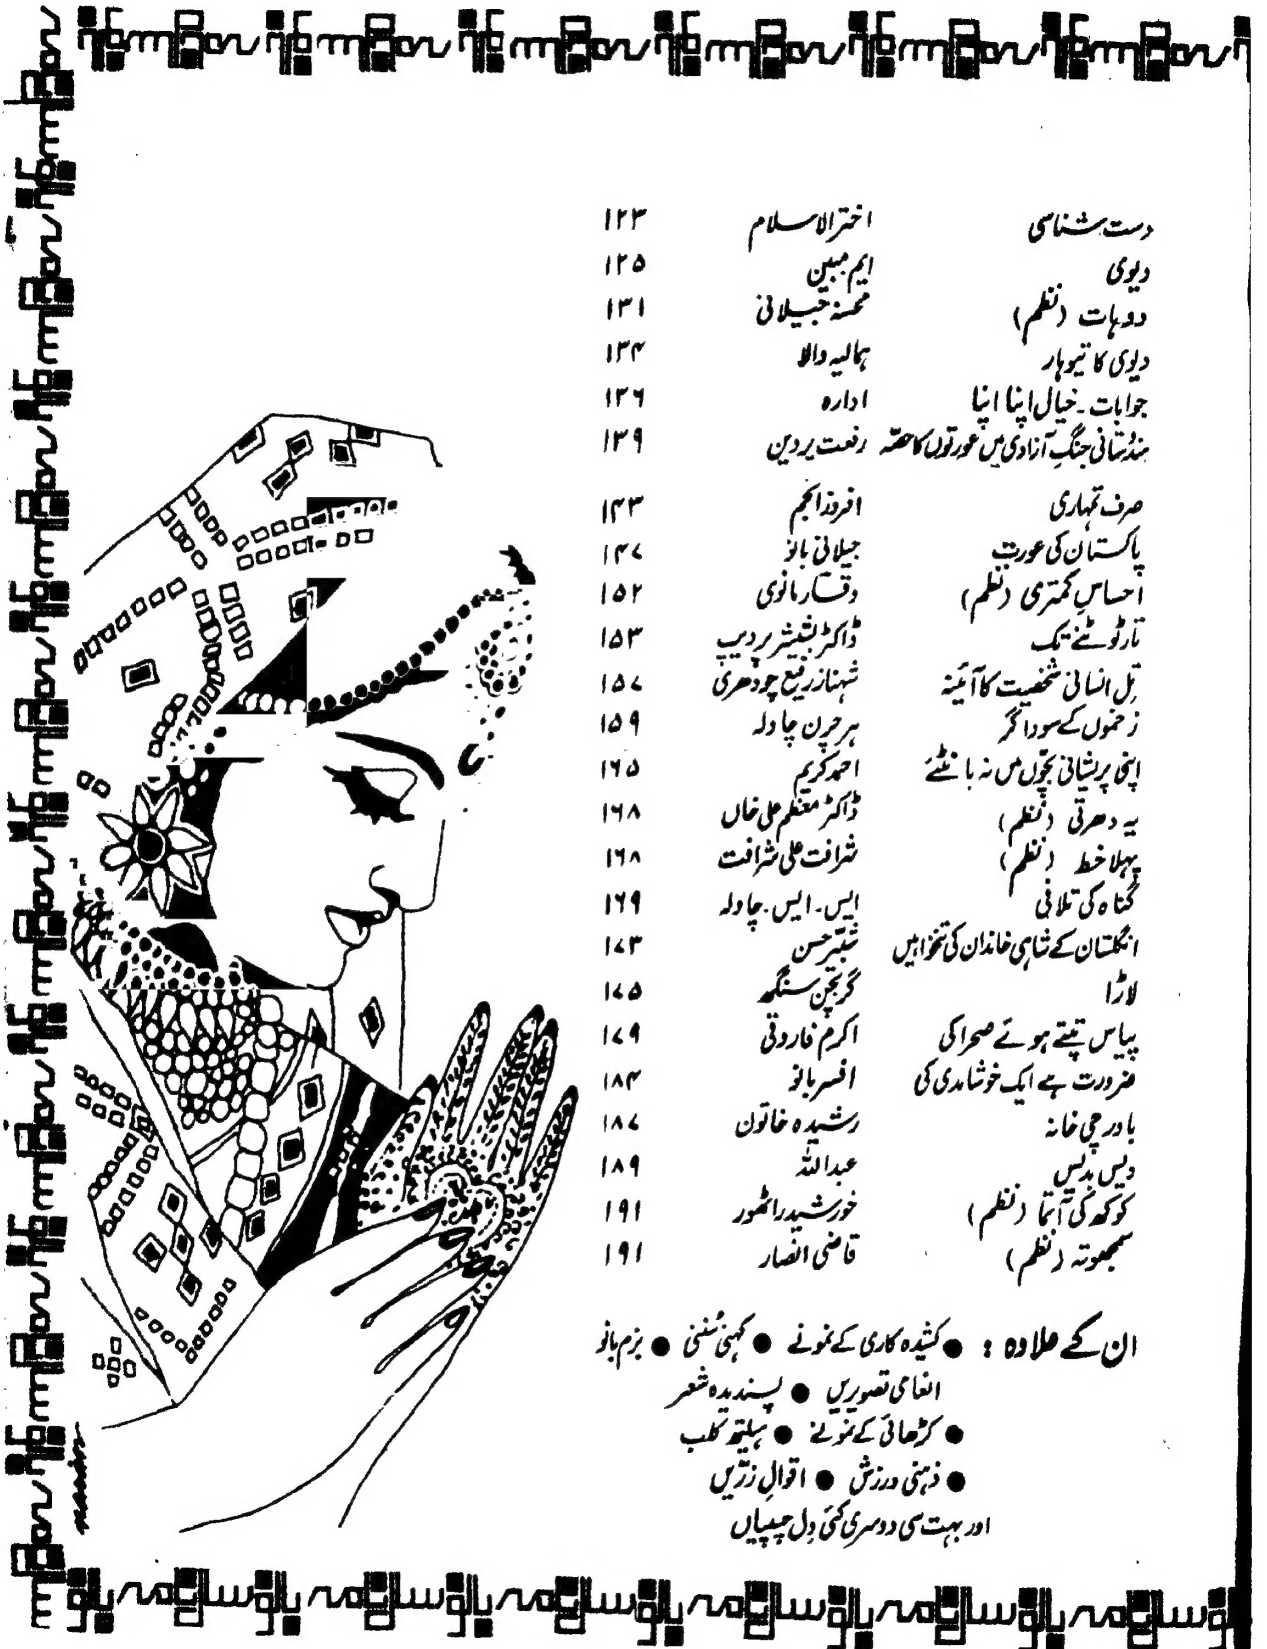 دست شناسی اختر الاسلام ۱۲۳
دیوی ایم مبین ۱۲۵
دوہات (نظم) محسنہ جیلانی ۱۳۱
دیوی کا تیوہار ہمالیہ والا ۱۳۴
جوابات - خیال اپنا اپنا ادارہ ۱۳۶
ہندُستانی جنگِ آزادی میں عورتوں کا حصّہ رفعت پروین ۱۳۹
صرف تمہاری افروز انجم ۱۴۳
پاکستان کی عورت جیلانی بانو ۱۴۷
احساسِ کمتری (نظم) وقار مانوی ۱۵۲
تار ٹوٹنے تک ڈاکٹر بشیشر پردیپ ۱۵۳
تِل انسانی شخصیت کا آئینہ شہناز رفیع چودھری ۱۵۷
زخموں کے سوداگر ہرچرن چاولہ ۱۵۹
اپنی پریشانی بچّوں میں نہ بانٹئے احمد کریم ۱۶۵
یہ دھرتی (نظم) ڈاکٹر معظم علی خاں ۱۶۸
پہلا خط (نظم) شرافت علی شرافت ۱۶۸
گناہ کی تلافی ایس۔ ایس۔ چاولہ ۱۶۹
انگلستان کے شاہی خاندان کی تنخواہیں شبیّر حسن ۱۷۳
لاڑا گربچن سنگھ ۱۷۵
پیاس تپتے ہوئے صحرا کی اکرم فاروقی ۱۷۹
ضرورت ہے ایک خوشامدی کی افسر بانو ۱۸۴
باورچی خانہ رشیدہ خاتون ۱۸۷
دیس بدیس عبداللہ ۱۸۹
کوکھ کی آتما (نظم) خورشید راٹھور ۱۹۱
سمجھوتہ (نظم) قاضی انصار ۱۹۱
ان کے علاوہ : ● کشیدہ کاری کے نمونے ● کہنی سُننی ● بزم بانو
انعامی تصویریں ● پسندیدہ شعر
● کڑھائی کے نمونے ● ہیلتھ کلب
● ذہنی ورزش ● اقوالِ زرّیں
اور بہت سی دوسری کئی دِل چسپیاں